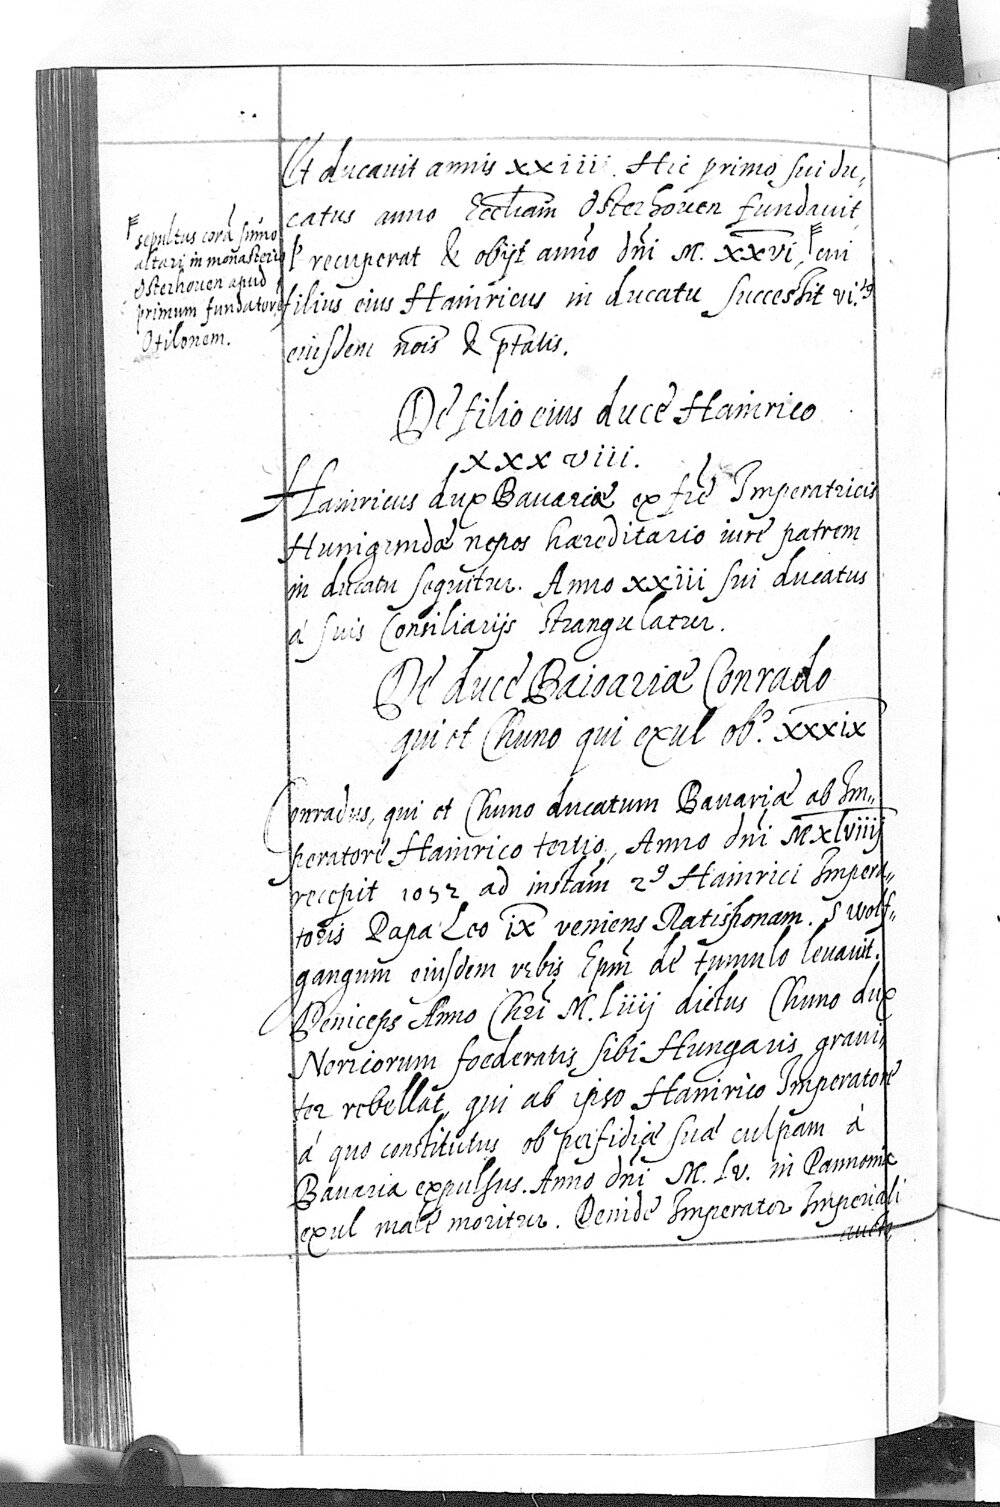 Et ducavit annis xxiiii. Hic primo sui du„
catus anno Eccliam Osterhouen fundauit
recuperat & obijt anno dni M. xxvi, cui
filius eius Hainricus in ducatu successit vi.tus
eiusdem nois & ptatis.
sepultus corā sūmo
altari in monasterio
Osterhouen apud
primum fundatorē
Otilonem.
De filio eius duce Hainrico
xxxviii.
Hainricus dux Bauariæ ex fre Imperatricis
Hunigundæ nepos hæreditario iure patrem
in ducatu sequitur. Anno xxiii sui ducatus
á suis Consiliarijs strangulatur.
De duce Baioariæ Conrado
qui et Chuno qui exul ob. xxxix
Conradus, qui et Chuno ducatum Bauariæ ab Im„
peratore Hainrico tertio, Anno dni Mxlviiij
recepit 1052 ad instam Hainrici Impera„
toris Papa Leo ix veniens Ratisponam. S wolf„
gangum eiusdem vrbis Epm de tumulo leuauit.
Deniceps Anno Chri M. liiij dictus Chuno dux
Noricorum foederatis sibi Hungaris graui„
ter rebellat, qui ab ipso Hainrico Imperatore
á quo constitutus ob perfidiæ suæ culpam á
Bauaria expulsus. Anno dni M. lv. in Pannonia
exul male moritur. Deinde Imperator Imperiali